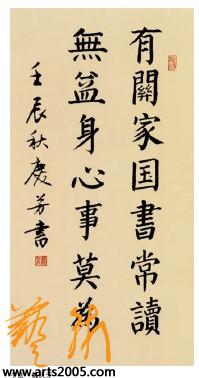 有關家国書常讀
無益身心事莫為
壬辰秋慶芬書
www.arts2005.com